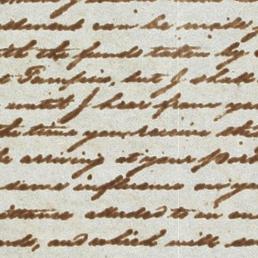 can be made
with the funds taken by
at Tampico, but I shall
until I hear from you
the time you receive the
be arriving at your port
same influence on you
alluded to in an
and which will